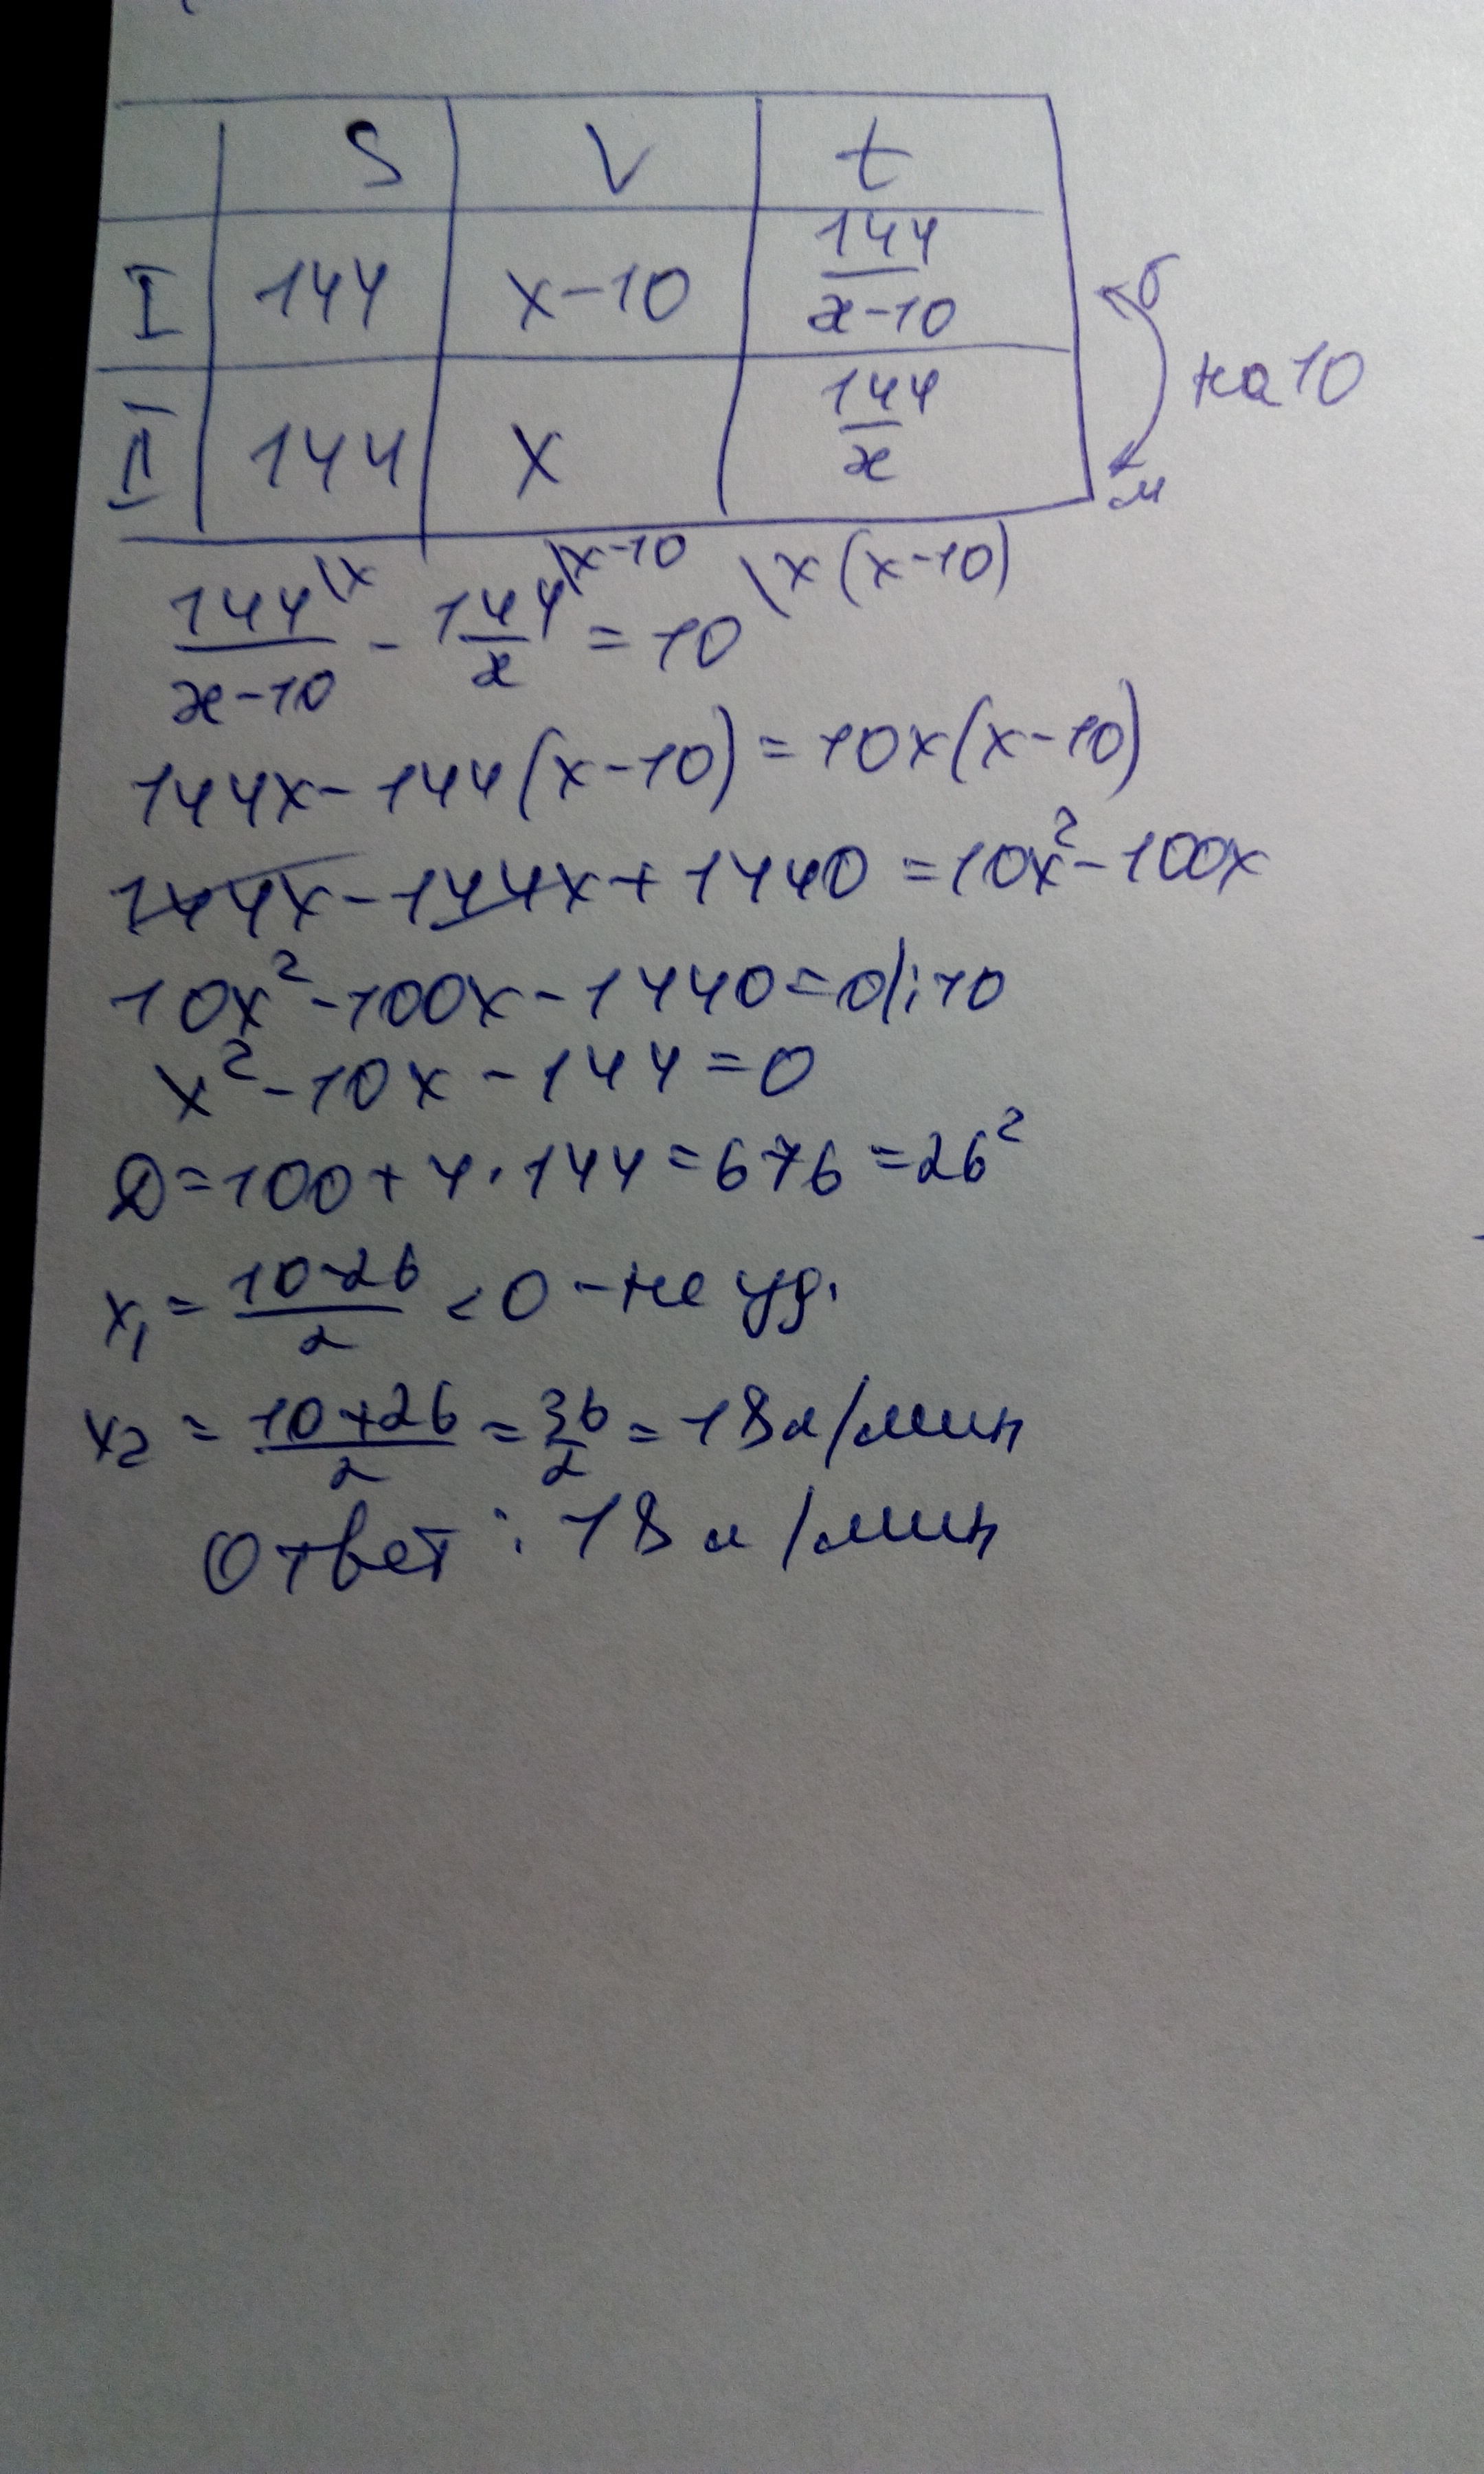 S V t
I 144 x-10 144/(x-10) б
на 10
II 144 x 144/x м
144/(x-10) \x - 144/x \x-10 = 10 \x(x-10)
144x-144(x-10)=10x(x-10)
144x-144x+1440=10x²-100x
10x²-100x-1440=0|:10
x²-10x-144=0
D=100+4·144=676=26²
x₁=(10-26)/2<0-не уд.
x₂=(10+26)/2=36/2=18л/мин
Ответ: 18л/мин